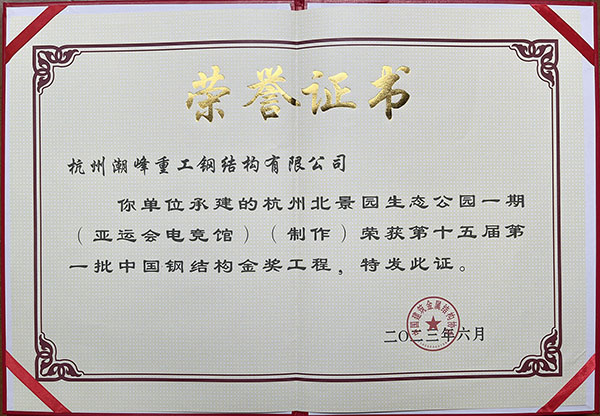 荣誉证书
杭州潮峰重工钢结构有限公司
你单位承建的杭州北景园生态公园一期
（亚运会电竞馆）（制作）荣获第十五届第
一批中国钢结构金奖工程，特发此证。
中国建筑金属结构协会
二〇二三年六月